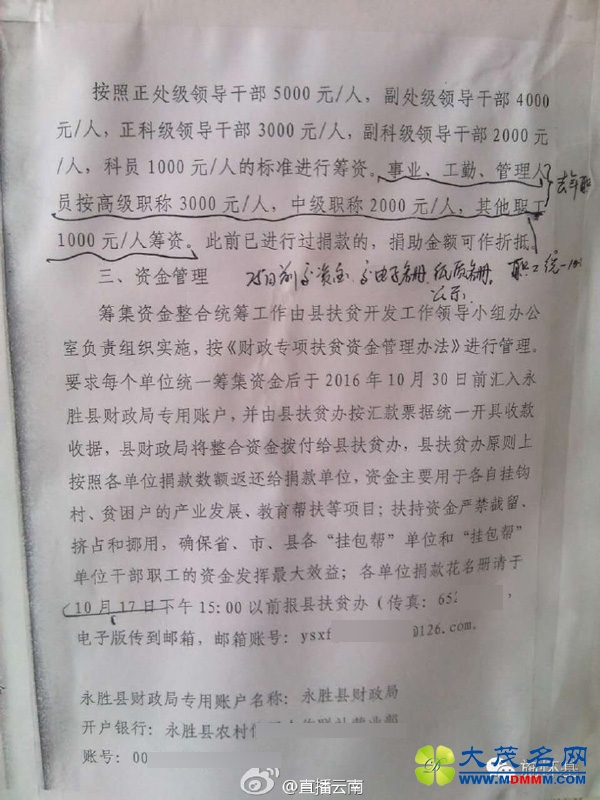 按照正处级领导干部5000元/人，副处级领导干部4000
元/人，正科级领导干部3000元/人，副科级领导干部2000元
/人，科员1000元/人的标准进行筹资。事业、工勤、管理人
员按高级职称3000元/人，中级职称2000元/人，其他职工
1000元/人筹资。此前已进行过捐款的，捐助金额可作折抵。
三、资金管理
25日前交资金 交电子名册 纸质名册
公示
职工统一
筹集资金整合统筹工作由县扶贫开发工作领导小组办公
室负责组织实施，按《财政专项扶贫资金管理办法》进行管理。
要求每个单位统一筹集资金后于2016年10月30日前汇入永
胜县财政局专用账户，并由县扶贫办按汇款票据统一开具收款
收据，县财政局将整合资金拨付给县扶贫办，县扶贫办原则上
按照各单位捐款数额返还给捐款单位，资金主要用于各自挂钩
村、贫困户的产业发展、教育帮扶等项目；扶持资金严禁截留、
挤占和挪用，确保省、市、县各“挂包帮”单位和“挂包帮”
单位干部职工的资金发挥最大效益；各单位捐款花名册请于
10月17日下午15:00以前报县扶贫办（传真：652
，
电子版传到邮箱，邮箱账号：ysxf
@126.com.
永胜县财政局专用账户名称：永胜县财政局
开户银行：永胜县农村
账号：00
@直播云南
大茂名网
WWW.MDMMM.COM